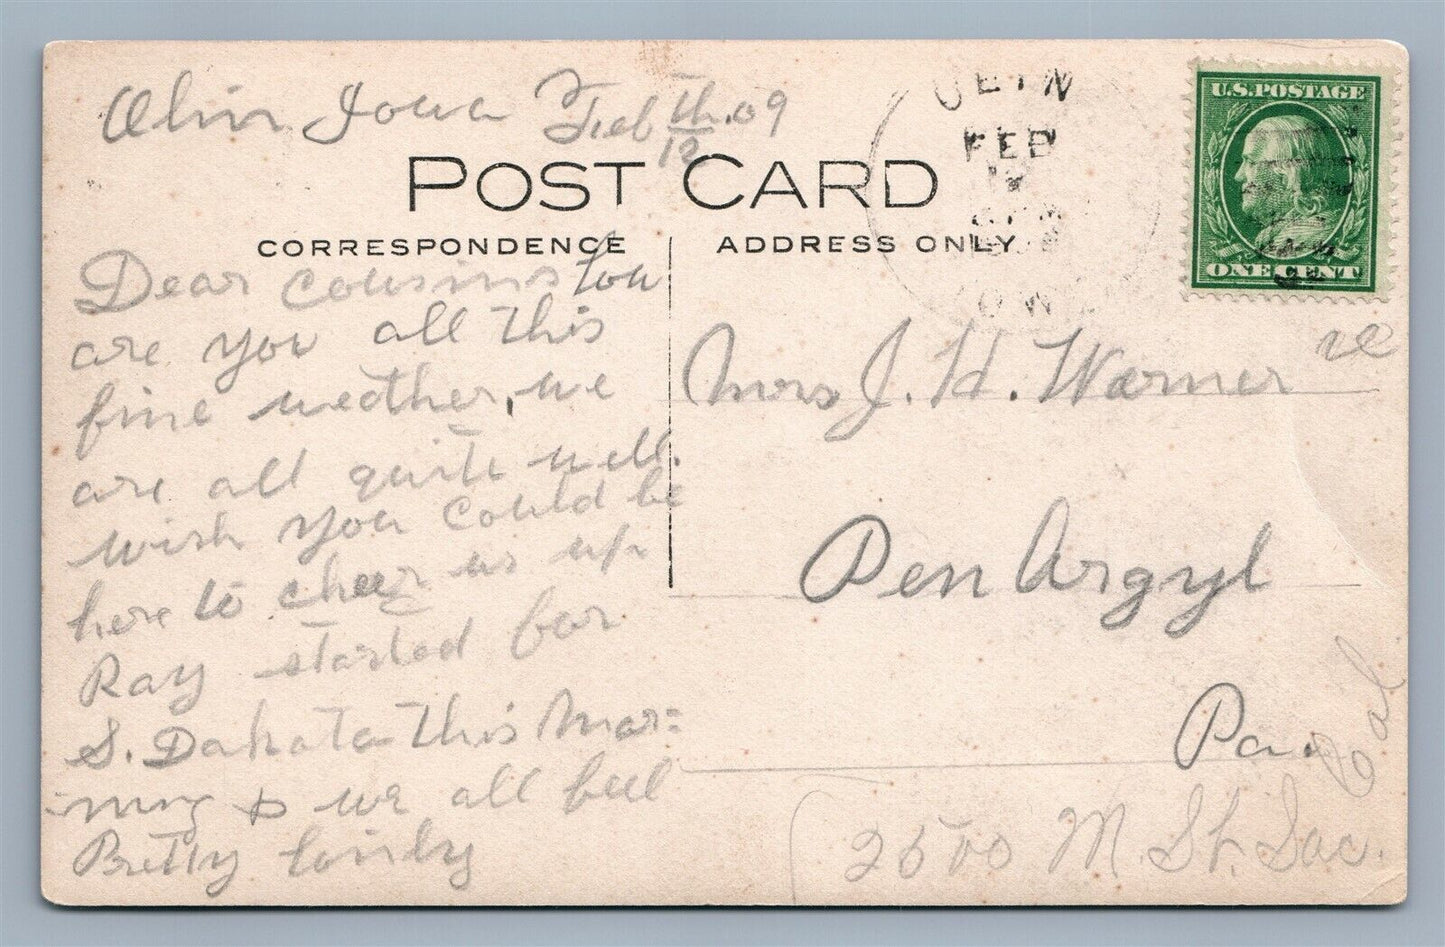 Olin Iowa Feb 12th. 09
POST CARD
CORRESPONDENCE
ADDRESS ONLY
U.S. POSTAGE
ONE CENT
FEB
Dear Cousins How
are you all this
fine weather, we
are all quite well.
wish you could be
here to cheer us up
Ray started for
S. Dakota this Mor=
ning & we all feel
Pretty lonely
Mrs J. H. Warner
Pen Argyl
Pa.
2500 M. St. Sac.
Cal